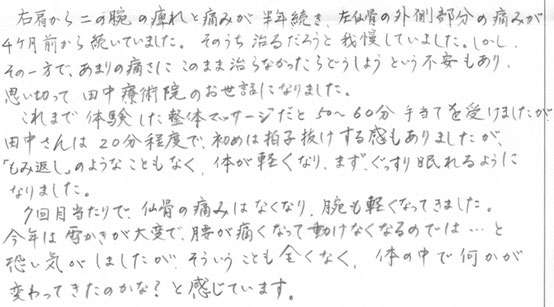 右肩から二の腕の痺れと痛みが半年続き、左仙骨の外側部分の痛みが
4ヶ月前から続いていました。そのうち治るだろうと我慢していました。しかし、
その一方で、あまりの痛さにこのまま治らなかったらどうしようという不安もあり、
思い切って田中療術院のお世話になりました。
これまで体験した整体マッサージだと50〜60分手当てを受けましたが
田中さんは20分程度で、初めは拍子抜けする感もありましたが、
「もみ返し」のようなこともなく、体が軽くなり、まず、ぐっすり眠れるように
なりました。
7回目当たりで、仙骨の痛みはなくなり、腕も軽くなってきました。
今年は雪かきが大変で、腰が痛くなって動けなくなるのでは…と
恐い気がしましたが、そういうことも全くなく、体の中で何かが
変わってきたのかな?と感じています。